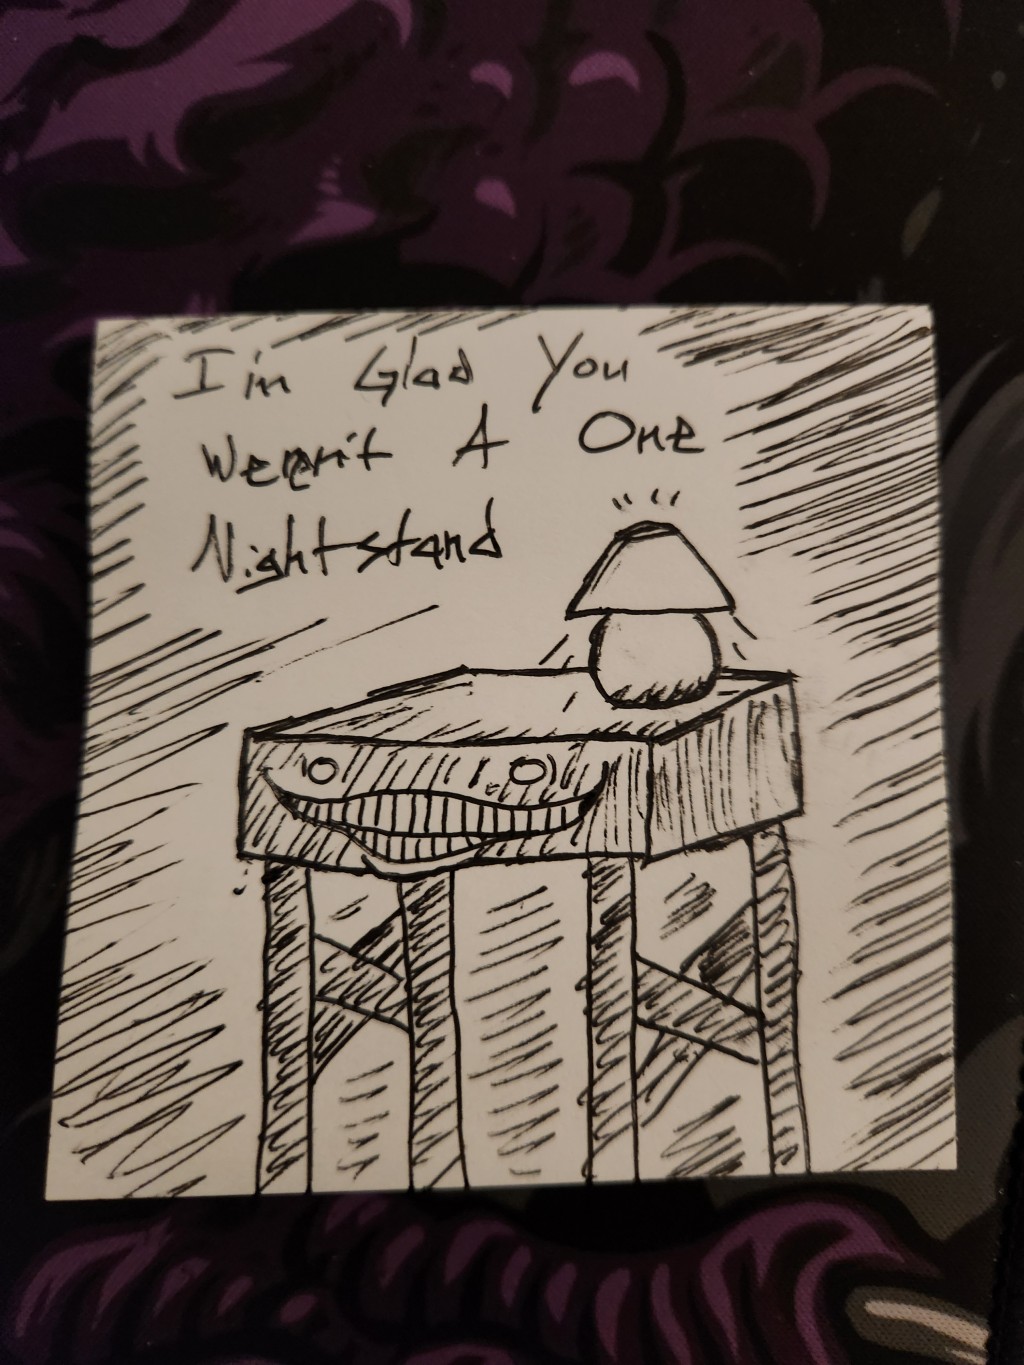 I'm Glad You
Weren't A One
Nightstand